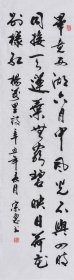 畢竟西湖六月中風光不與四時
同接天蓮葉無窮碧映日荷花
別樣紅 楊萬里詩 辛丑年夏月 書